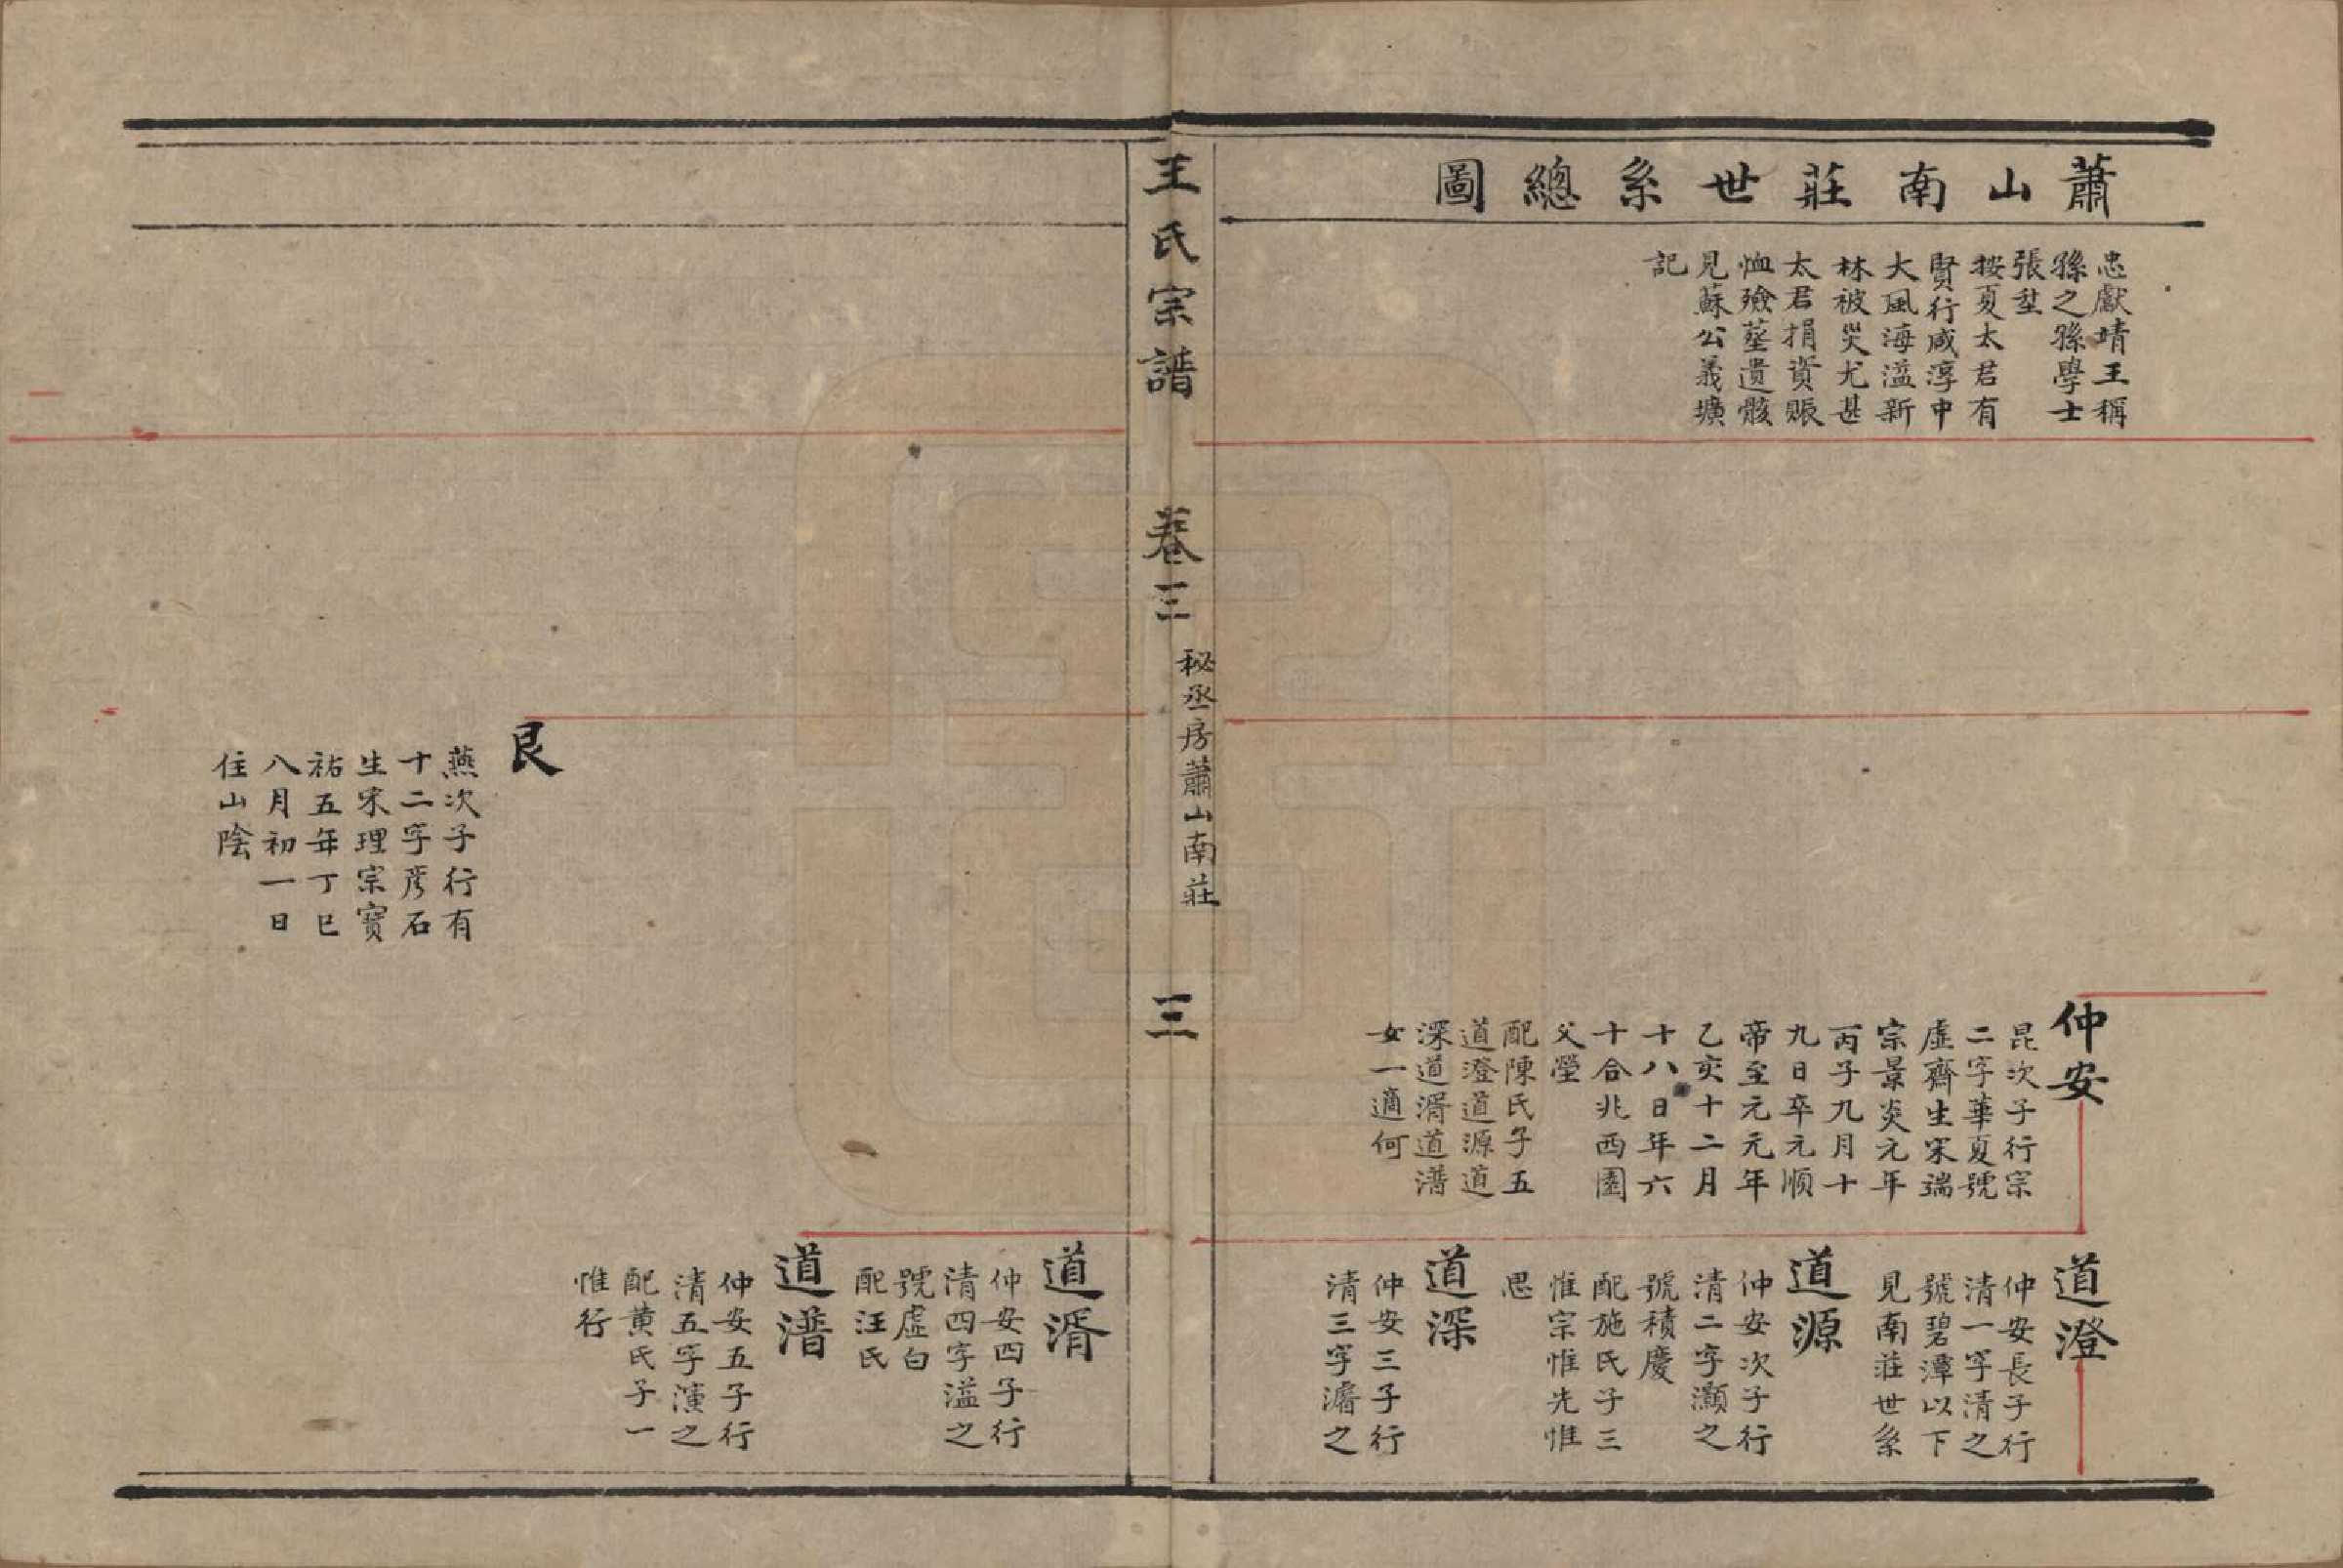 蕭山南莊世系總圖
忠獻靖王稱
孫之孫學士
張堃
按夏太君有
賢行咸淳中
大風海溢新
林被災尤甚
太君捐資賑
恤殮塟遺骸
見蘇公義壙
記
仲安
昆次子行宗
二字華夏號
虛齋生宋端
宗景炎元年
丙子九月十
九日卒元順
帝至元元年
乙亥十二月
十八日年六
十合兆西園
父塋
配陳氏子五
道澄道源道
深道湑道潽
女一適何
道澄
仲安長子行
清一字清之
號碧潭以下
見南莊世系
道源
仲安次子行
清二字灝之
號積慶
配施氏子三
惟宗惟先惟
思
道深
仲安三子行
清三字濬之
王氏宗譜
卷三
秘丞房蕭山南莊
三
道湑
仲安四子行
清四字溢之
號虛白
配汪氏
道潽
仲安五子行
清五字演之
配黄氏子一
惟行
艮
燕次子行有
十二字彥石
生宋理宗寳
祐五年丁巳
八月初一日
住山陰